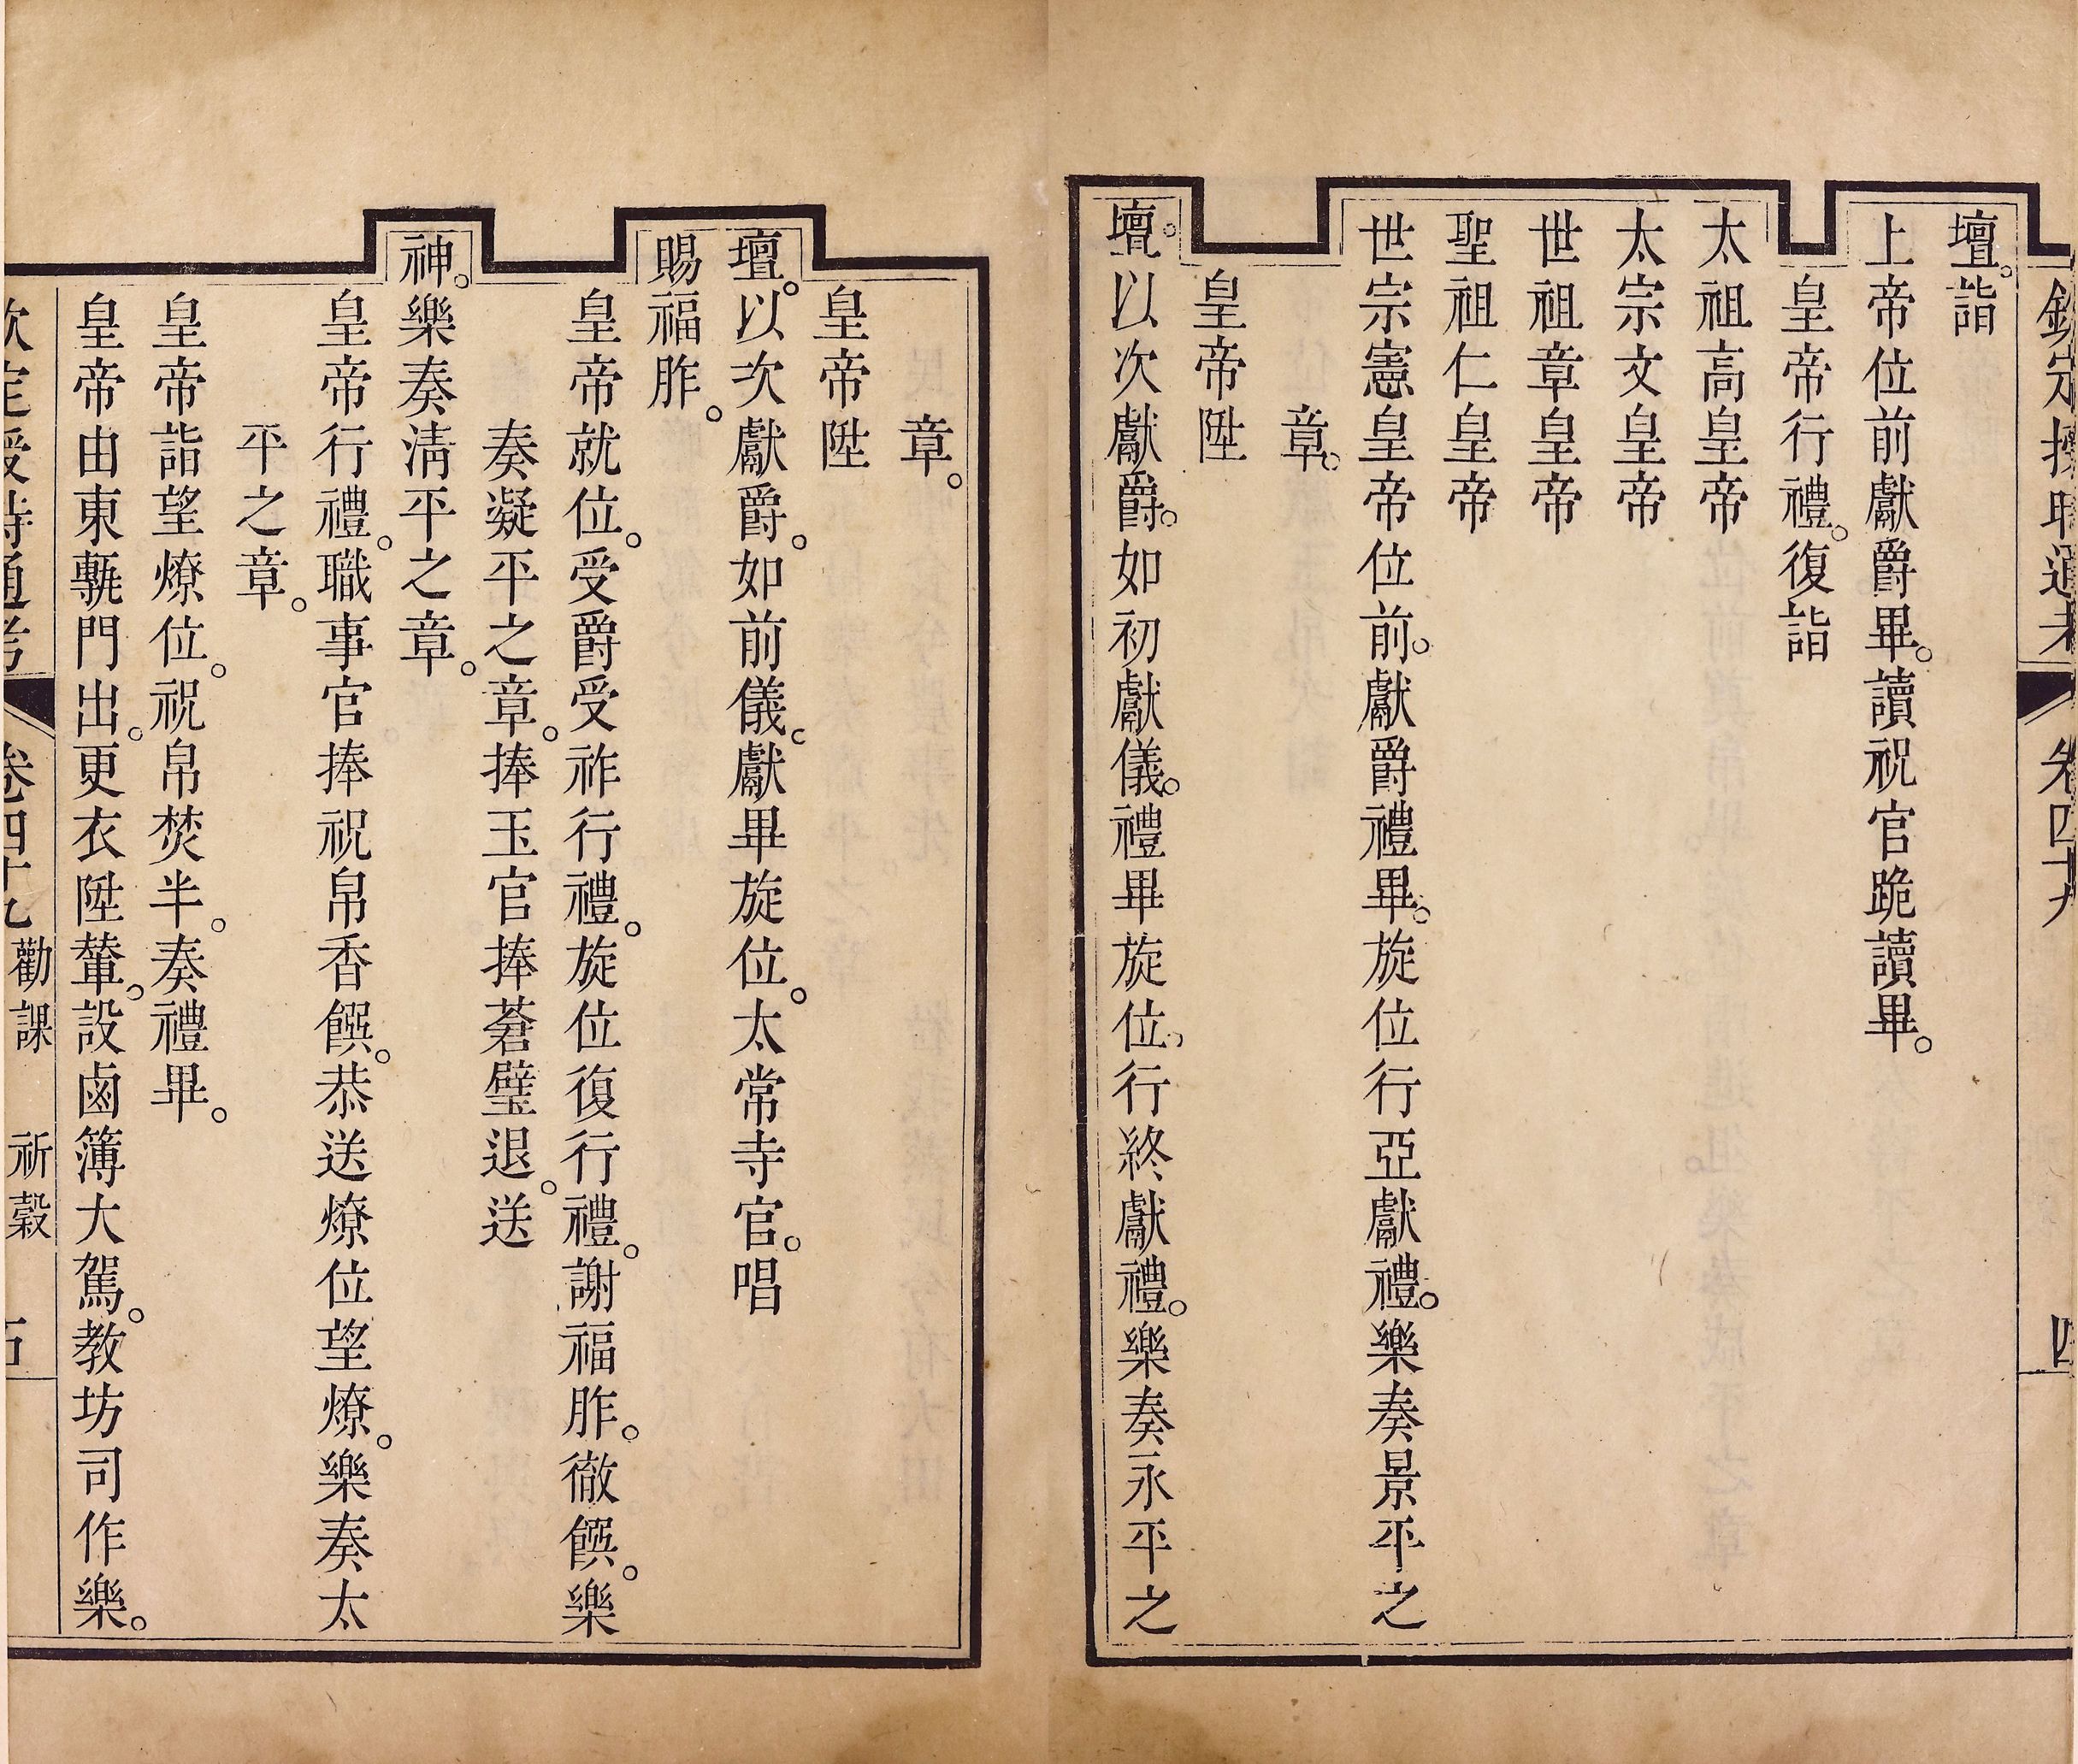 欽定授時通考 卷四十九 四
壇。詣
上帝位前獻爵畢。讀祝官跪讀畢。
皇帝行禮。復詣
太祖高皇帝
太宗文皇帝
世祖章皇帝
聖祖仁皇帝
世宗憲皇帝位前。獻爵禮畢。旋位行亞獻禮。樂奏景平之
章。
皇帝陞
壇。以次獻爵。如初獻儀。禮畢旋位。行終獻禮。樂奏永平之
章。
皇帝陞
壇。以次獻爵。如前儀。獻畢旋位。太常寺官。唱
賜福胙。
皇帝就位。受爵受祚行禮。旋位復行禮。謝福胙。徹饌。樂
奏凝平之章。捧玉官捧蒼璧退。送
神。樂奏淸平之章。
皇帝行禮。職事官捧祝帛香饌。恭送燎位望燎。樂奏太
平之章。
皇帝詣望燎位。祝帛焚半。奏禮畢。
皇帝由東甎門出。更衣陞輦。設鹵簿大駕。教坊司作樂。
欽定授時通考 卷四十九 勸課 祈穀 五